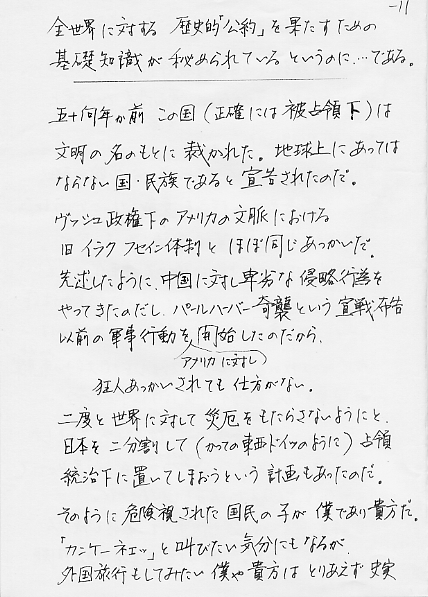 -11
全世界に対する 歴史的「公約」を果たすための
基礎知識が秘められているというのに…である。
五十何年か前 この国(正確には被占領下)は
文明の名のもとに裁かれた。地球上にあっては
ならない国・民族であると宣告されたのだ。
ヴッシュ政権下のアメリカの文脈における
旧イラク フセイン体制と ほぼ同じあつかいだ。
先述したように、中国に対し卑劣な侵略行為を
やってきたのだし、パールハーバー奇襲という宣戦布告
以前の軍事行動を 開始したのだから、
アメリカに対し
狂人あつかいされても仕方がない。
二度と世界に対して災厄をもたらさないようにと、
日本を二分割して(かつての東西ドイツのように)占領
統治下に置いてしまおうという計画もあったのだ。
そのように危険視された国民の子が僕であり貴方だ。
「カンケーネェッ」と叫びたい気分にもなるが、
外国旅行もしてみたい僕や貴方はとりあえず史実